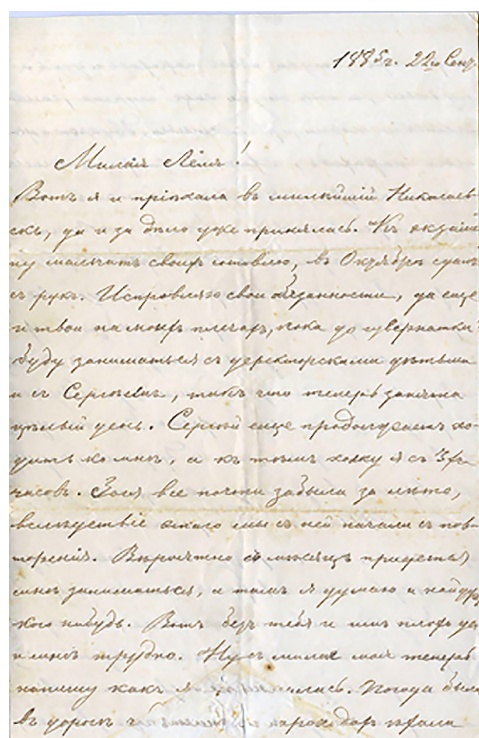 1885 г. 22го Сент.
Милая Лёля!
Вотъ я и пріѣхала въ милѣйшій Николаев-
скъ, да и за дѣло уже принялась. Къ экзаме
ну мальчатъ своихъ готовлю, въ Октябрѣ сдамъ
съ рукъ. Исправляю свои обязанности, да еще
и твои на моихъ плечахъ, пока до гувернантки
буду заниматься съ директорскими дѣтьми
и съ Сергѣемъ, такъ что теперь занята
цѣлый день. Сергѣй еще продолжаетъ хо-
дить ко мнѣ, а къ тѣмъ хожу я съ
часовъ. Зоя все почти забыла за лѣто,
вслѣдствіе чего мы съ ней начали съ пов-
торенія. Вѣроятно съ мѣсяцъ придется
мнѣ заниматься, а тамъ я думаю и найдутъ
кого нибудь. Вотъ безъ тебя и имъ плохо да
и мнѣ трудно. Ну-съ милая моя теперь
напишу какъ я Погода была
въ дорогѣ пароходъ